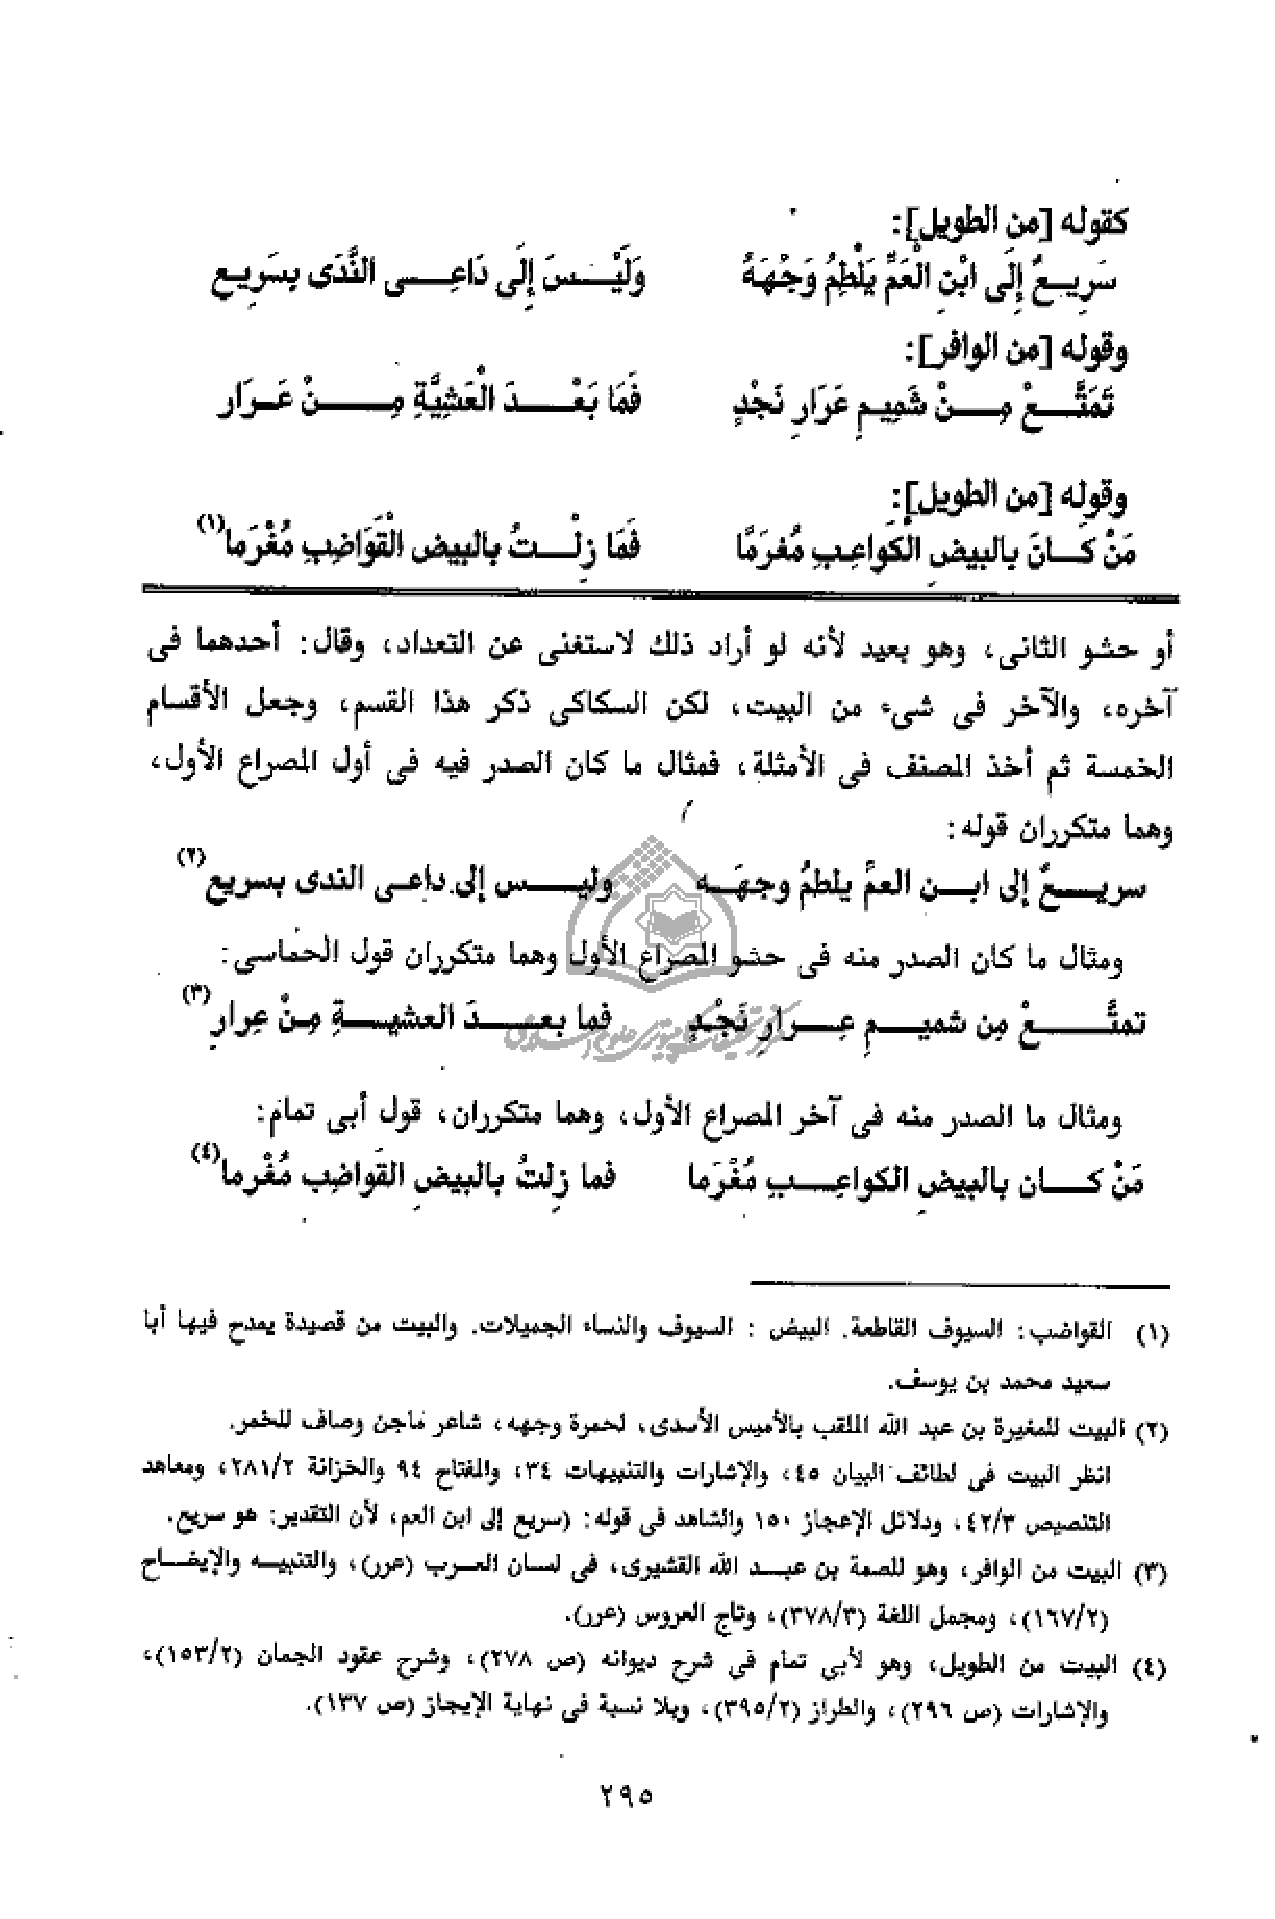 كقوله [من الطويل]:
سَرِيعٌ إِلَى ابْنِ الْعَمِّ يَلْطِمُ وَجْهَهُ وَلَيْسَ إِلَى دَاعِى النَّدَى بِسَرِيعِ
وقوله [من الوافر]:
تَمَتَّعْ مِنْ شَمِيمِ عَرَارِ نَجْدٍ فَمَا بَعْدَ الْعَشِيَّةِ مِنْ عَرَارِ
وقوله [من الطويل]:
مَنْ كَانَ بالبيضِ الْكَواعِبِ مُغرَمًا فَمَا زِلْتُ بالبيض الْقَوَاضِبِ مُغْرَما(١)
أو حشو الثانى، وهو بعيد لأنه لو أراد ذلك لاستغنى عن التعداد، وقال: أحدهما فى
آخره، والآخر فى شىء من البيت، لكن السكاكى ذكر هذا القسم، وجعل الأقسام
الخمسة ثم أخذ المصنف فى الأمثلة، فمثال ما كان الصدر فيه فى أول المصراع الأول،
وهما متكرران قوله:
سريعٌ إلى ابن العمِّ يلطمُ وجهَه وليس إلى داعى الندى بسريع(٢)
ومثال ما كان الصدر منه فى حشو المصراع الأول وهما متكرران قول الحماسى:
تمتَّعْ مِن شميمِ عِرارِ نَجْدٍ فما بعدَ العشيةِ مِنْ عِرارِ(٣)
ومثال ما الصدر منه فى آخر المصراع الأول، وهما متكرران، قول أبى تمام:
مَنْ كان بالبيضِ الكواعِبِ مُغْرَما فما زِلتُ بالبيضِ القَواضِب مُغْرما(٤)
(١) القواضب: السيوف القاطعة. البيض: السيوف والنساء الجميلات. والبيت من قصيدة يمدح فيها أبا
سعيد محمد بن يوسف.
(٢) البيت للمغيرة بن عبد الله الملقب بالأميس الأسدى، لحمرة وجهه، شاعر ماجن وصاف للخمر.
انظر البيت فى لطائف البيان ٤٥، والإشارات والتنبيهات ٣٤، والمفتاح ٩٤ والخزانة ٢٨١/٢، ومعاهد
التنصيص ٤٢/٣، ودلائل الإعجاز ١٥٠ والشاهد فى قوله: (سريع إلى ابن العم، لأن التقدير: هو سريع.
(٣) البيت من الوافر، وهو للصمة بن عبد الله القشيرى، فى لسان العرب (عرر)، والتنبيه والإيضاح
(١٦٧/٢)، ومجمل اللغة (٣٧٨/٣)، وتاج العروس (عرر).
(٤) البيت من الطويل، وهو لأبي تمام فى شرح ديوانه (ص ٢٧٨)، وشرح عقود الجمان (١٥٣/٢)،
والإشارات (ص ٢٩٦)، والطراز (٣٩٥/٢)، وبلا نسبة فى نهاية الإيجاز (ص ١٣٧).
٢٩٥